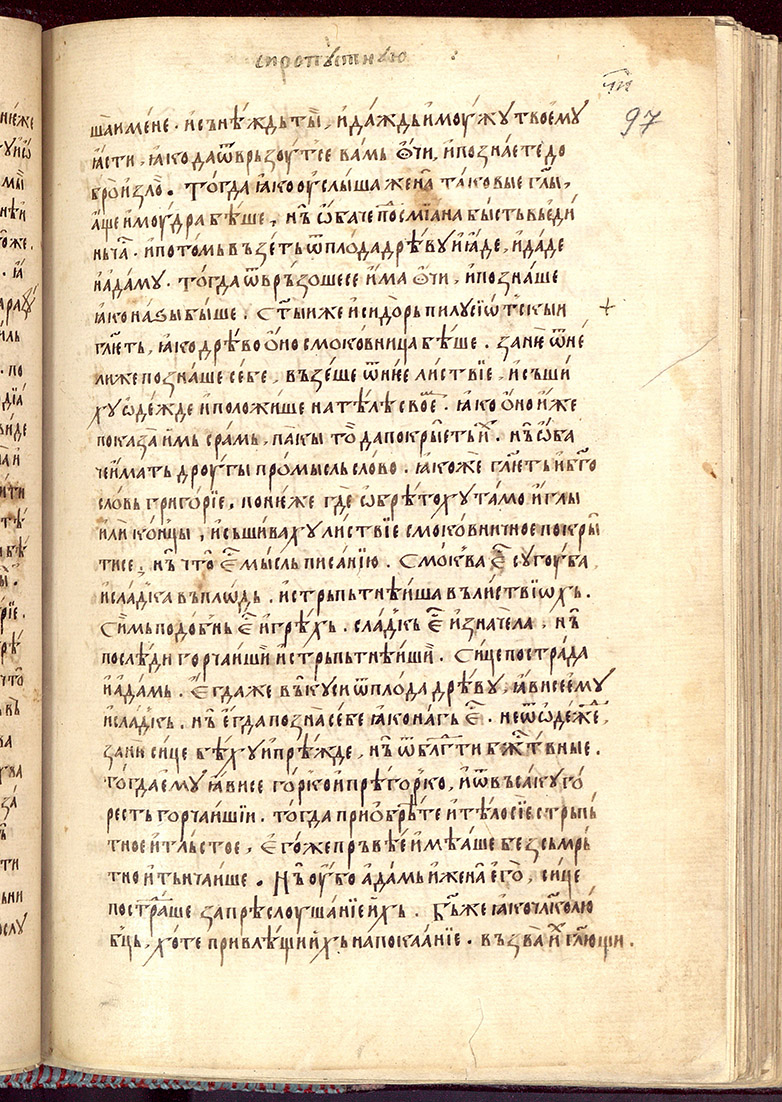 сиропустную :
чи
97
ша и мене . и сънѣждь ты , и даждь и моужу твоему
ꙗсти , ꙗко да ѿврьзоутсе вамь ѻчи , и познаете до
бро и зло . Тогда ꙗко оуслыша жена таковые глы ,
аще и моудра бѣше , нь ѡбаче посмїана бысть въ еди
нь час . и потомь възеть ѿ плода дрѣву и ꙗде , и даде
и адаму . тогда ѿврѣзошесе има ѻчи , и познаше
ꙗко нази быше . Стыи же исидорь пилусїѡтскыи
глѥть , ꙗко дрѣво ѻно смоковница бѣше . зане ѿнѥ
лиже познаше себе , възеше ѿ нѥе листвїе , и съши
ху ѡдежде и положише на тѣлѣ своѥм . ꙗко ѻно иже
показа имь срамь , пакы то да покрыеть их . нь ѡба
че имать дроугы промысль слово . ꙗкоже глѥть и бго
словь григорїе , понѥже где ѡбрѣтоху тамо иглы
или концы , и съшиваху листвїе смоковничное покры
тисе ; нь что ѥс мысль писанїю . Смоква ѥс сугоуба ,
и сладка въ плѡдь . и стрьпьтнѣиша въ листвїѡхъ .
Симь подобнь ѥс и грѣхъ . сладкъ ѥс изначела , нь
последи горчаиши и стрьпьтнѣиши . Сице пострада
и адамь . Ѥгда же въкуси ѿ плода дрѣву , ꙗвисе ѥму
и сладкъ . нь ѥгда позна себе ꙗко нагь ѥс . не ѿ ѻдежде ,
зане сице бѣху и прѣжде , нь ѿ блгсти бжтвные .
тогда ѥму ꙗвисе горко и прѣгорко , и ѿ всакуго
ресть горчаишїи . тогда приѻбрѣте и тѣло сїе стрьпь
тное и тльстое , Ѥгоже прьвѣе имѣаше бесьмрь
тно и тьнчаише . Нь оубо адамь и жена ѥго , сице
пострдаше за прѣслоушанїе ихъ . Бь же ꙗко члколю
бць , хоте привлѣщи ихъ на покаанїе . възва их глющи .